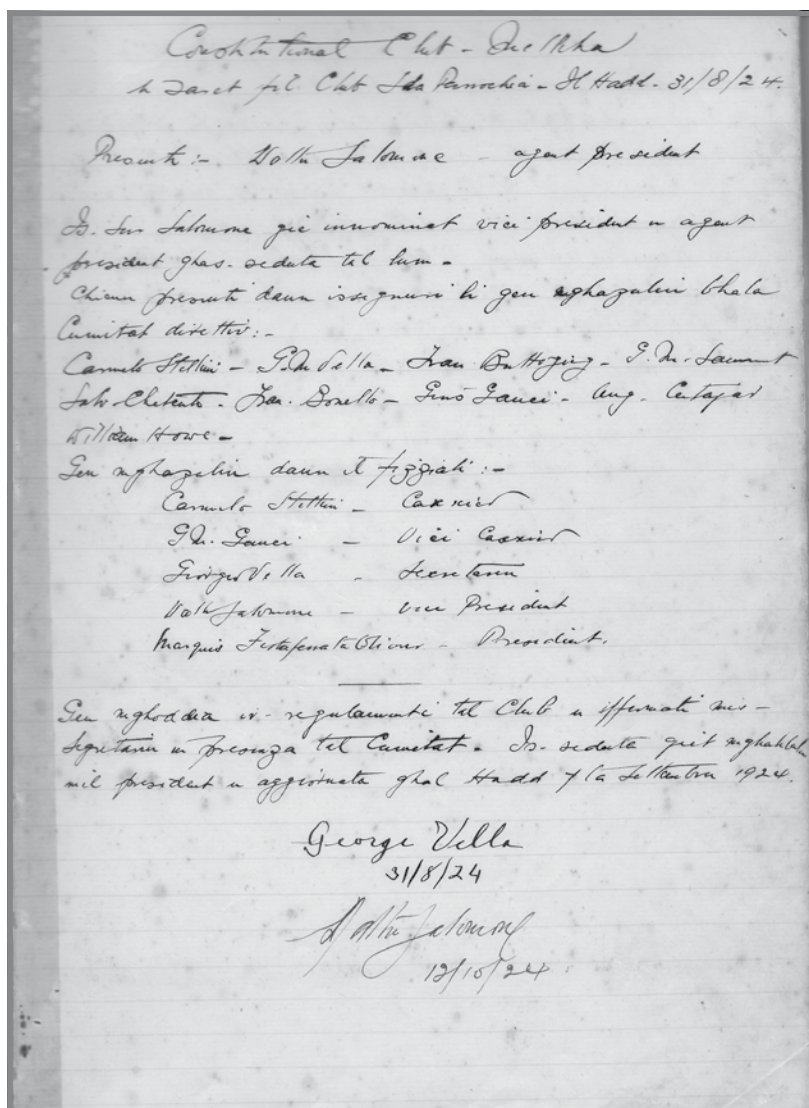 Constitutional Club - Mellieha
saret fil Club Sda Parrochia - Il Hadd - 31/8/24.
Presenti :- Dottor Salomone - agent president
Is. Sur Salomone gie innominat vici president u agent
president ghas. seduta tal lum -
Chienu presenti daun issignuri li geu mghazulin bhala
Cumitat direttiv :-
Carmelo Stellini - G.M. Vella - Fran Buttigieg - G. M.
Salv. - Fran. Bonello - Ganci - Aug. Cutajar
William Howe -
Geu mghazulin daun :-
Carmelo Stellini - Caxxier
G.M. Gauci - Vici Caxxier
Giorgio Vella - Secretaru
Salomone - Vice President
Marquis Testaferrata Olivier - President.
Geu mghoddia ir-regulamenti tal Club u iffirmati mis -
Segretariu in presenza tal Cumitat. Is. seduta giet mghalluka
mil president u aggiornata ghal Hadd 7 ta Settembru 1924.
George Vella
31/8/24
Salomone
12/10/24